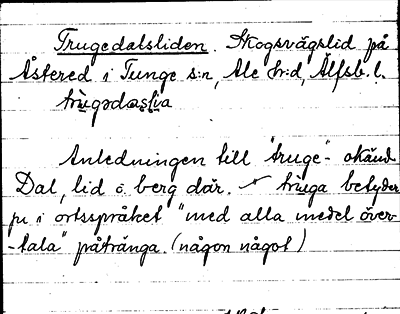 Trugedalsliden. Skogsvägslid på
Åstered i Tunge s:n, Ale h:d, Älfsb. l.
Anledningen till "truge"- okänd.
Dal, lid o. berg där. truga betyder
ju i ortsspråket "med alla medel över-
-tala" påtränga. (någon något)